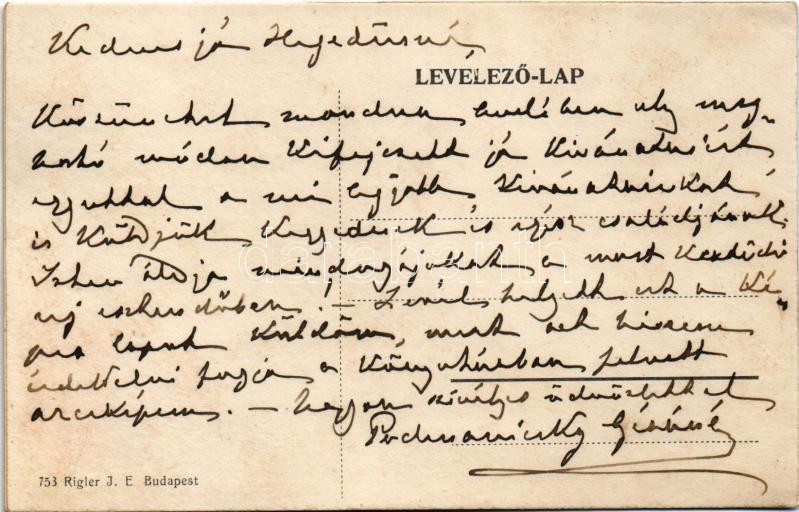 Kedves jó Hegedüsné
LEVELEZŐ-LAP
Köszönetet mondva levélben oly meg-
ható módon kifejezett jó kívánatаiért
egyuttal a mi legjobb kívánatainkat
is küldjük Kegyednek is egész családjának
Isten áldja mindnyájukat a most kezdődő
új esztendőben! – Levél helyett ezt a ké-
pes lapot küldöm, mert azt hiszem
érdekelni fogja a könyvtárban felvett
arcképem. – Nagyon szívélyes üdvözlettel
Podmaniczky Gézáné
databanth
753 Rigler J. E Budapest